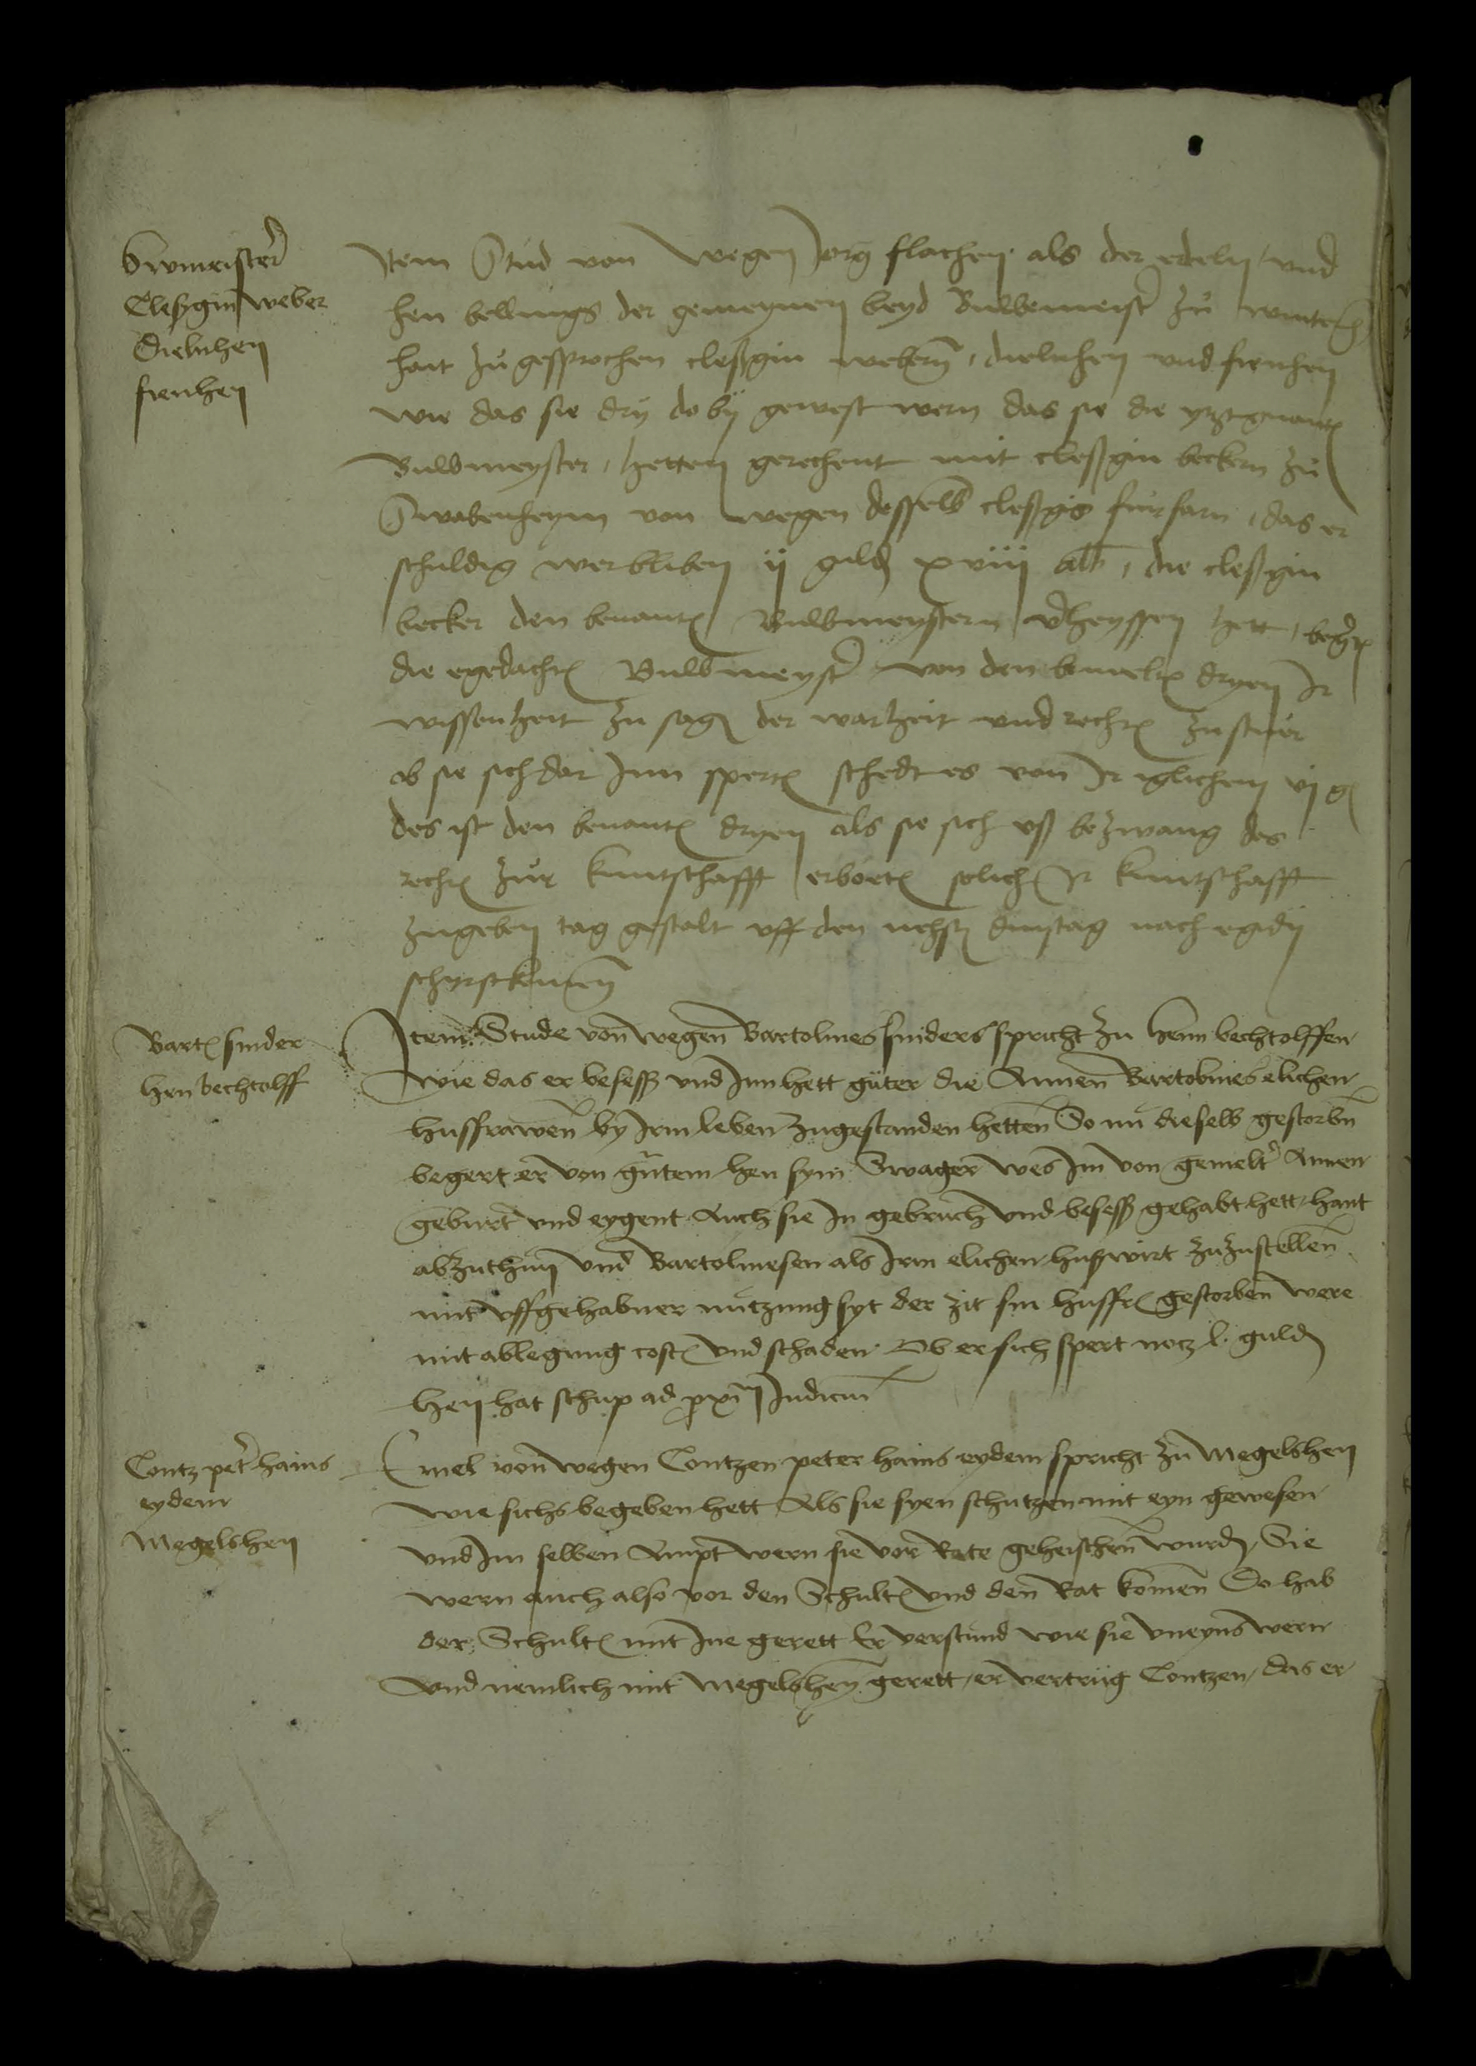 Bwmeister
Cleßgin weber
Dielnhen
fienhen
Item Stud von wegen Jorg flachen als der edeln und
hen bellings der gemeynen beyd Buwemeister zu wintern
hait zu gesprochen cleßgin webern, dielnhen und fienhen
wie das sie dry do by gewest wern das sie die ytztgnanten
Buwmeyster, hetten gerechent mit cleßgin beckern zu
Swabenheym von wegen desselben cleßgis furfarn, das er
schuldig wer bliben ij guld xviij alb, die cleßgin
becker den benanten Buwmeystern verheyssen hett, begern
die egedachten Buwmeyster von den bemelten dryen Ir
wissenheit zu sagen der warheit und rechten zu stuer
ob sie sich dar Inn sperten schedt es von Ir iglichem vj g
des ist den benanten dryen als sie sich uß bezwang des
rechten zur kuntschafft erboten solich Ir kuntschafft
zu geben tag gestalt uff den nehsten dinstag nach egidij
schyrstkomen
Barten snider
Hen bechtolff
Item Stude von wegen Bartolmes sniders spricht zu Henn bechtolffen
wie das er beseß und Inn hett guter die Annen Bartolmes elichen
hußfrawen by Irm leben zugestanden hetten So nu dieselb gestorbn
begert er von gnantem hen sym Swager wes Im von gemelter Annen
geburt und eygent Auch sie In gebruch und beseß gehabt hett hant
abzuthun und Bartolmesen als Irm elichen hußwirt zuzustellen
mit uffgehabner nutzung syt der zit sin hußfr gestorben were
mit ablegung costen und schaden Ob er sich spert nocz l guld
Hen hat schup ad proximum Judicium
Contz peter hains
eydem
Megelshen
Emel von wegen Contzen peter hains eydem spricht zu Megelshen
wie sichs begeben hett Als sie syen schutzen mit eyn gewesen
und Im selben Ampt wern sie vor Rate geheischen wurden, Sie
wern auch also vor den Schulten und den Rat komen Do hab
der Schulten mit Ine gerett Er verstund wie sie uneyns wern
und nemlich mit Megelshen gerett, er vertrug Contzen, das er